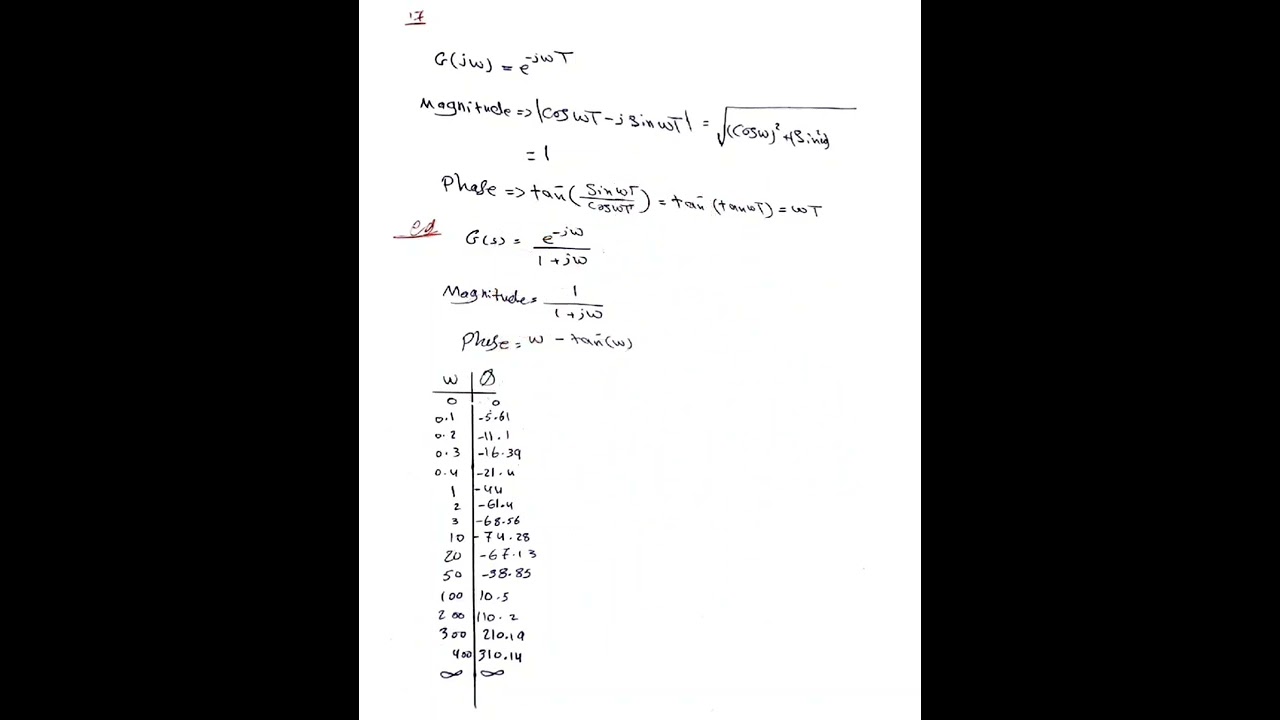 17
G(jω) = e^-jωT
Magnitude => |Cos ωT - j Sin ωT| = √(Cosω)² + (Sinω)²
= 1
Phase => tan⁻(Sin ωT / Cos ωT) = tan⁻(tan ωT) = ωT
G(s) = e^-jω / 1 + jω
Magnitude = 1 / 1 + jω
Phase = ω - tan⁻(ω)
ω | Ø
0 | 0
0.1 | -5.61
0.2 | -11.1
0.3 | -16.39
0.4 | -21.4
1 | -44
2 | -61.4
3 | -68.56
10 | -74.28
20 | -67.13
50 | -38.85
100 | 10.5
200 | 110.2
300 | 210.19
400 | 310.14
∞ | ∞